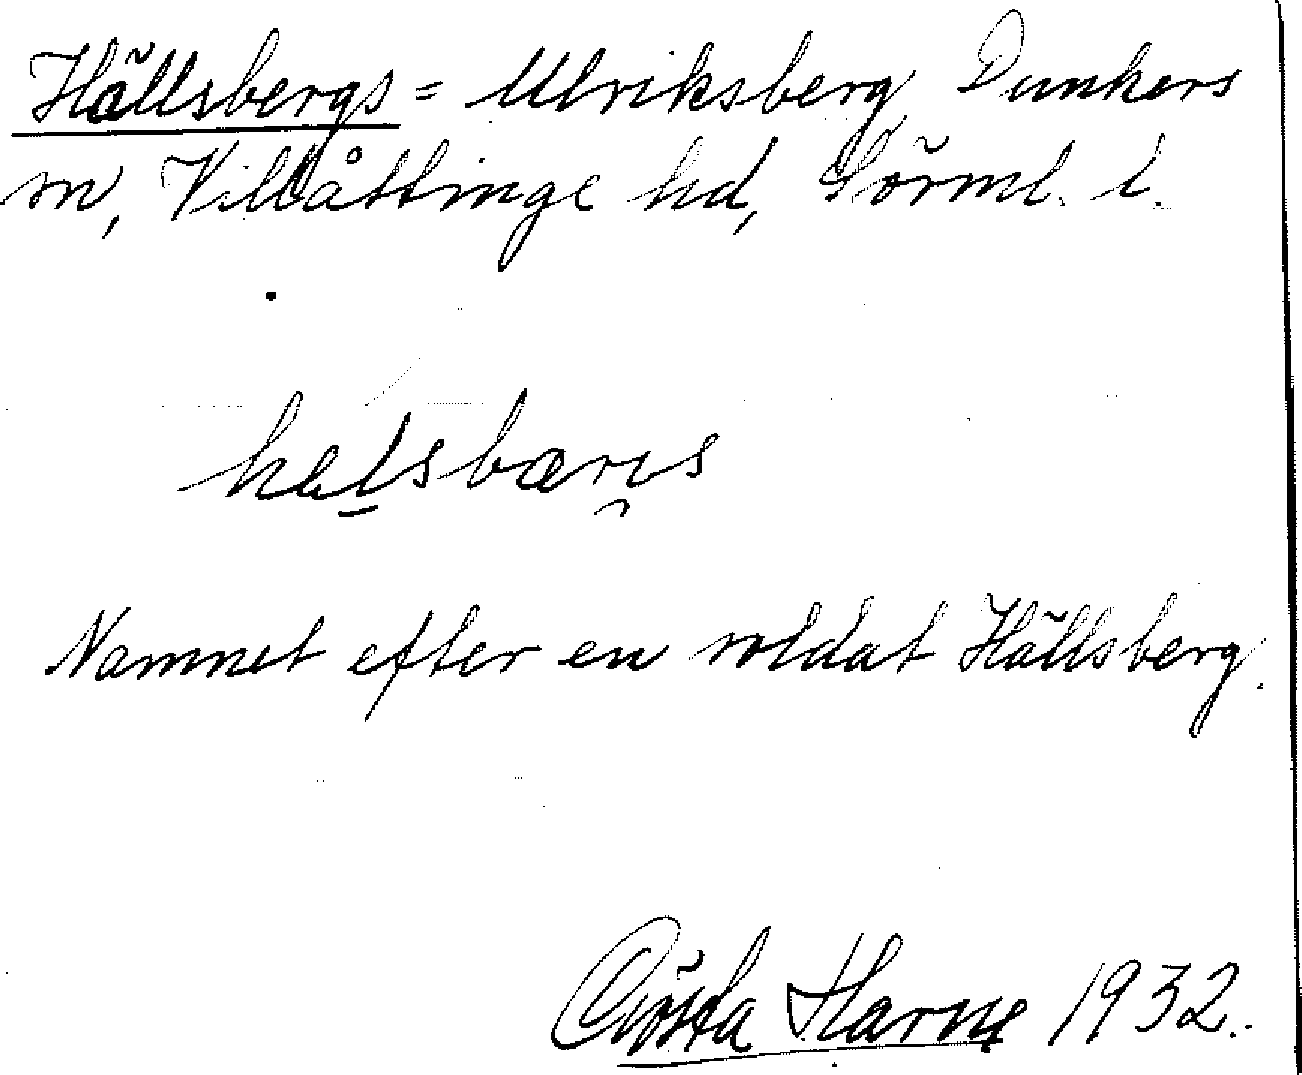 Hällsbergs = Ulriksberg Dunkers
sn, Villåttinge hd, Sörml. l.
hälsbærjs
Namnet efter en soldat Hällsberg.
Gösta Harne 1932.